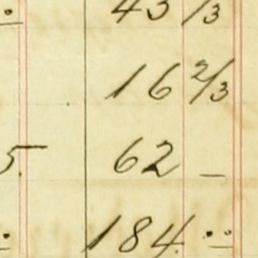 43 1/3
16 2/3
5 62 _
184 . ..